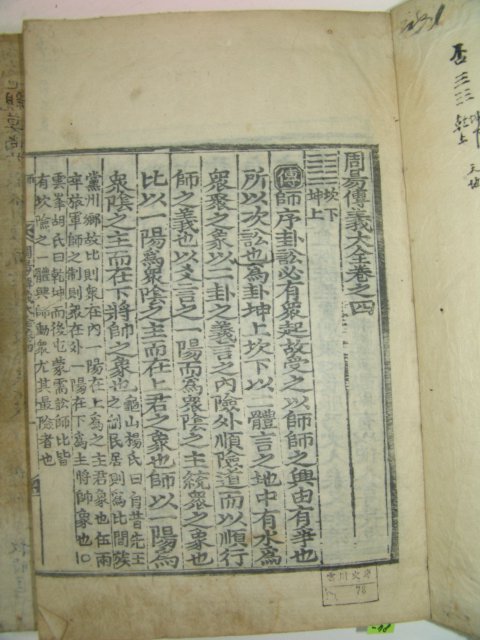 周易傳義大全卷之四
坎下
坤上
傳師序卦訟必有衆起故受之以師師之興由有爭也
所以次訟也爲卦坤上坎下以二體言之地中有水爲
衆聚之象以二卦之義言之內險外順險道而以順行
師之義也以爻言之一陽而爲衆陰之主統衆之象也
比以一陽爲衆陰之主而在上君之象也師以一陽爲
衆陰之主而在下將帥之象也
龜山楊氏曰自昔先王之制民居則爲比閭族
黨州鄉故比則衆在內一陽在上爲之主君象也在兩
卒旅軍師之制則衆在外一陽在下爲之主將帥象也○
雲峯胡氏曰乾坤而後屯蒙需訟師比皆
有坎險之一體興師動衆尤其最險者也
否
乾上